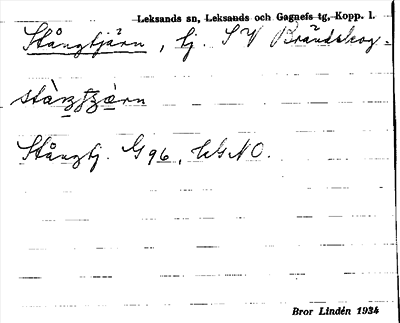 Leksands sn, Leksands och Gagnefs tg, Kopp. l.
Stångtjärn, tj. SV Brändskog.
Stångtj. G96,
Bror Lindén 1934